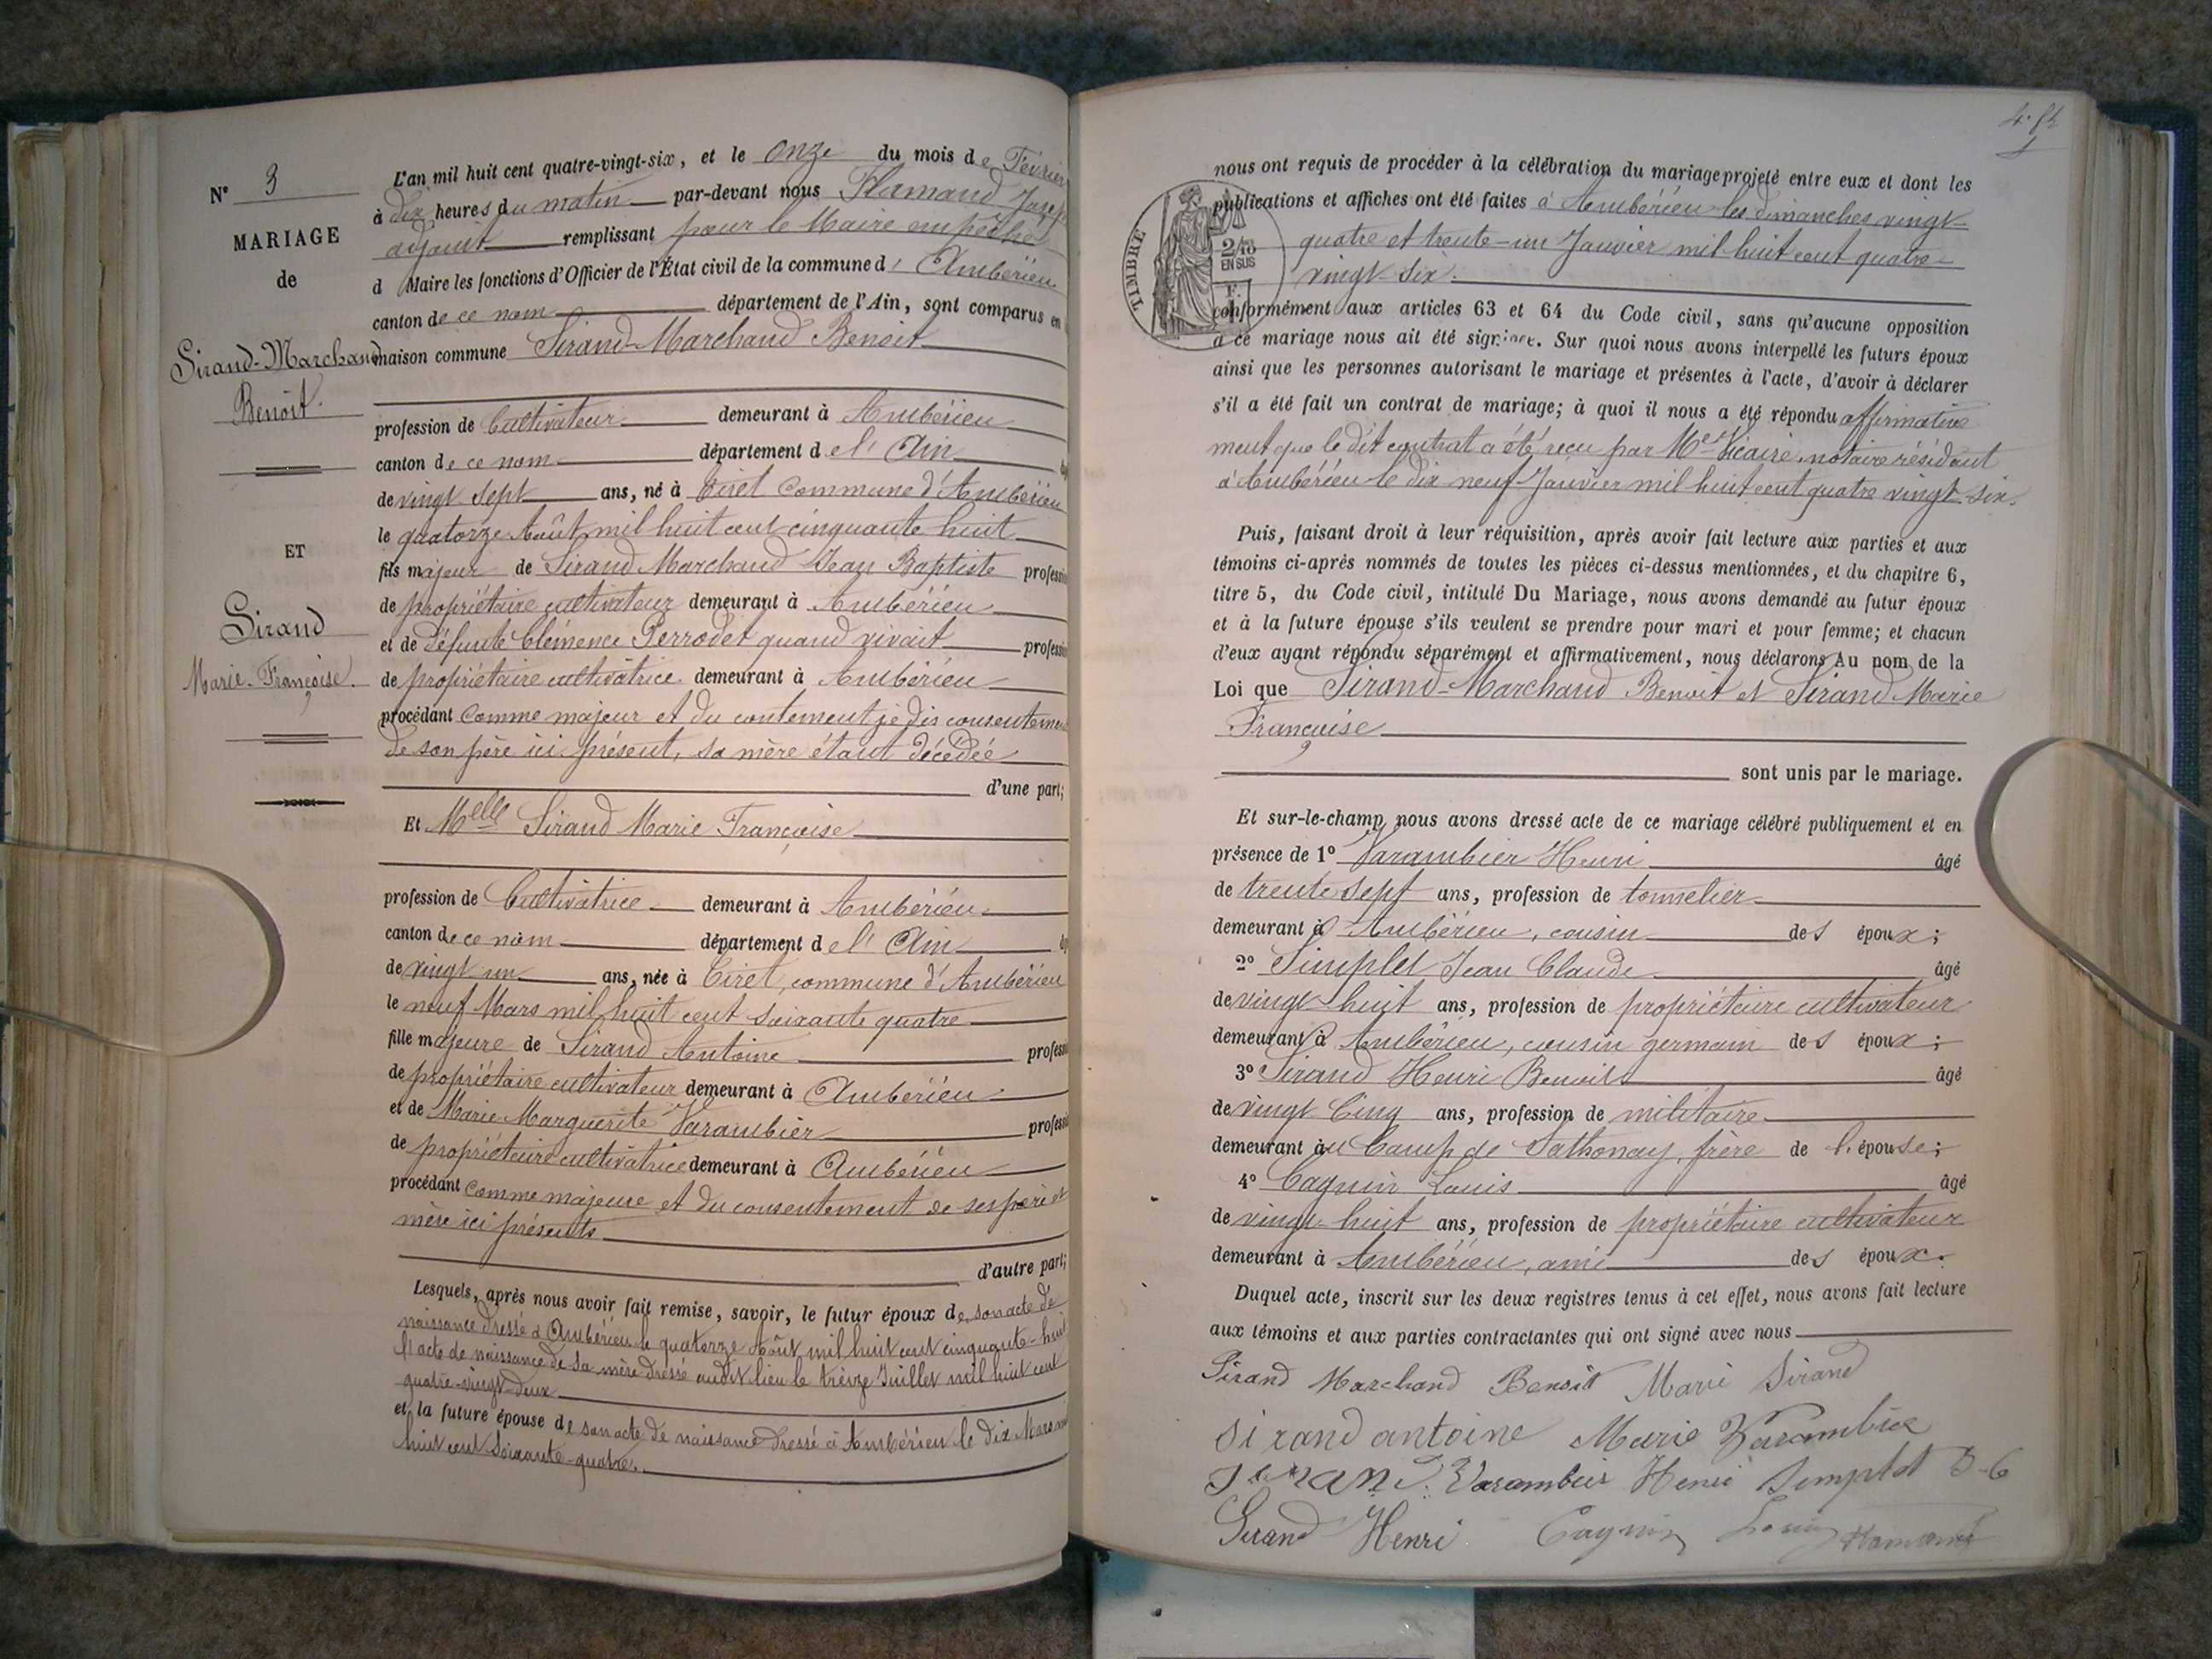 N° 3
MARIAGE
de
Sirand-Marchand
Benoît.
ET
Sirand
Marie-Françoise.
L'an mil huit cent quatre-vingt-six, et le onze du mois de Février
à dix heures du matin par-devant nous Flamand Josep
adjoint remplissant pour le Maire empêché
d Maire les fonctions d'Officier de l'État civil de la commune d' Ambérieu
canton de ce nom département de l'Ain, sont comparus en
maison commune Sirand-Marchand Benoit
profession de Cultivateur demeurant à Ambérieu
canton de ce nom département de l'Ain
de vingt sept ans, né à Tiret commune d'Ambérieu
le quatorze Août mil huit cent cinquante huit
fils majeur de Sirand Marchand Jean Baptiste profession
de propriétaire cultivateur demeurant à Ambérieu
et de défunte Clémence Perrodet quand vivait profession
de propriétaire cultivatrice demeurant à Ambérieu
procédant comme majeur et du contement je dis consentement
de son père ici présent, sa mère étant décédée
d'une part;
Et Melle Sirand Marie Françoise
profession de Cultivatrice demeurant à Ambérieu
canton de ce nom département de l'Ain
de vingt un ans, née à Tiret, commune d'Ambérieu
le neuf Mars mil huit cent soixante quatre
fille majeure de Sirand Antoine profession
de propriétaire cultivateur demeurant à Ambérieu
et de Marie Marguerite Varambier profession
de propriétaire cultivatrice demeurant à Ambérieu
procédant comme majeure et du consentement de ses père et
mère ici présents
d'autre part;
Lesquels, après nous avoir fait remise, savoir, le futur époux de son acte de
naissance dressé à Ambérieu le quatorze Août mil huit cent cinquante-huit
l'acte de naissance de sa mère dressé audit lieu le treize Juillet mil huit cent
quatre-vingt-deux
et la future épouse de son acte de naissance dressé à Ambérieu le dix Mars mil
huit cent soixante-quatre.
nous ont requis de procéder à la célébration du mariage projeté entre eux et dont les
publications et affiches ont été faites à Ambérieu les dimanches vingt-
quatre et trente-un Janvier mil huit cent quatre-
vingt-six.
TIMBRE
2/10
EN SUS
conformément aux articles 63 et 64 du Code civil, sans qu'aucune opposition
à ce mariage nous ait été signifiée. Sur quoi nous avons interpellé les futurs époux
ainsi que les personnes autorisant le mariage et présentes à l'acte, d'avoir à déclarer
s'il a été fait un contrat de mariage; à quoi il nous a été répondu affirmative
ment que le dit contrat a été reçu par Me Vicaire, notaire résidant
à Ambérieu le dix neuf Janvier mil huit cent quatre vingt-six.
Puis, faisant droit à leur réquisition, après avoir fait lecture aux parties et aux
témoins ci-après nommés de toutes les pièces ci-dessus mentionnées, et du chapitre 6,
titre 5, du Code civil, intitulé Du Mariage, nous avons demandé au futur époux
et à la future épouse s'ils veulent se prendre pour mari et pour femme; et chacun
d'eux ayant répondu séparément et affirmativement, nous déclarons Au nom de la
Loi que Sirand-Marchand Benoit et Sirand Marie
Françoise
sont unis par le mariage.
Et sur-le-champ nous avons dressé acte de ce mariage célébré publiquement et en
présence de 1° Varambier Henri âgé
de trente sept ans, profession de tonnelier
demeurant à Ambérieu, cousin des époux;
2° Simplet Jean Claude âgé
de vingt-huit ans, profession de propriétaire cultivateur
demeurant à Ambérieu, cousin germain des époux;
3° Sirand Henri Benoit âgé
de vingt Cinq ans, profession de militaire
demeurant au Camp de Sathonay, frère de l'épouse;
4° Cagnin Louis âgé
de vingt-huit ans, profession de propriétaire cultivateur
demeurant à Ambérieu, ami des époux.
Duquel acte, inscrit sur les deux registres tenus à cet effet, nous avons fait lecture
aux témoins et aux parties contractantes qui ont signé avec nous
Sirand Marchand Benoit Marie Sirand
Sirand antoine Marie Varambier
Varambier Henri Simplet J-C
Sirand Henri Cagnin Louis Flamand